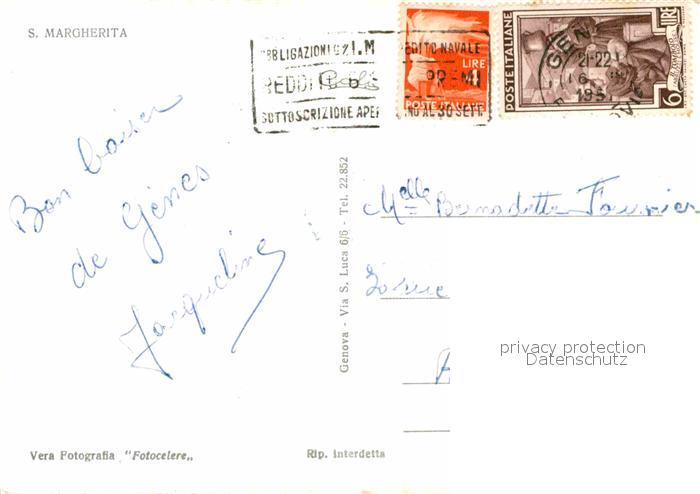 S. MARGHERITA
OBBLIGAZIONI
EDITO NAVALE
REDDITO
PREMI
SOTTOSCRIZIONE APER
NO AL 30 SETT.
LIRE
POSTE ITALIANE
POSTE ITALIANE
GEN
21-22
195
LIRE
6
Bon baiser
de Gênes
Jacqueline
Genova - Via S. Luca 6/6 - Tel. 22.852
Melle Bernadette Fournier
privacy protection
Datenschutz
Vera Fotografia "Fotocelere„
Rip. interdetta